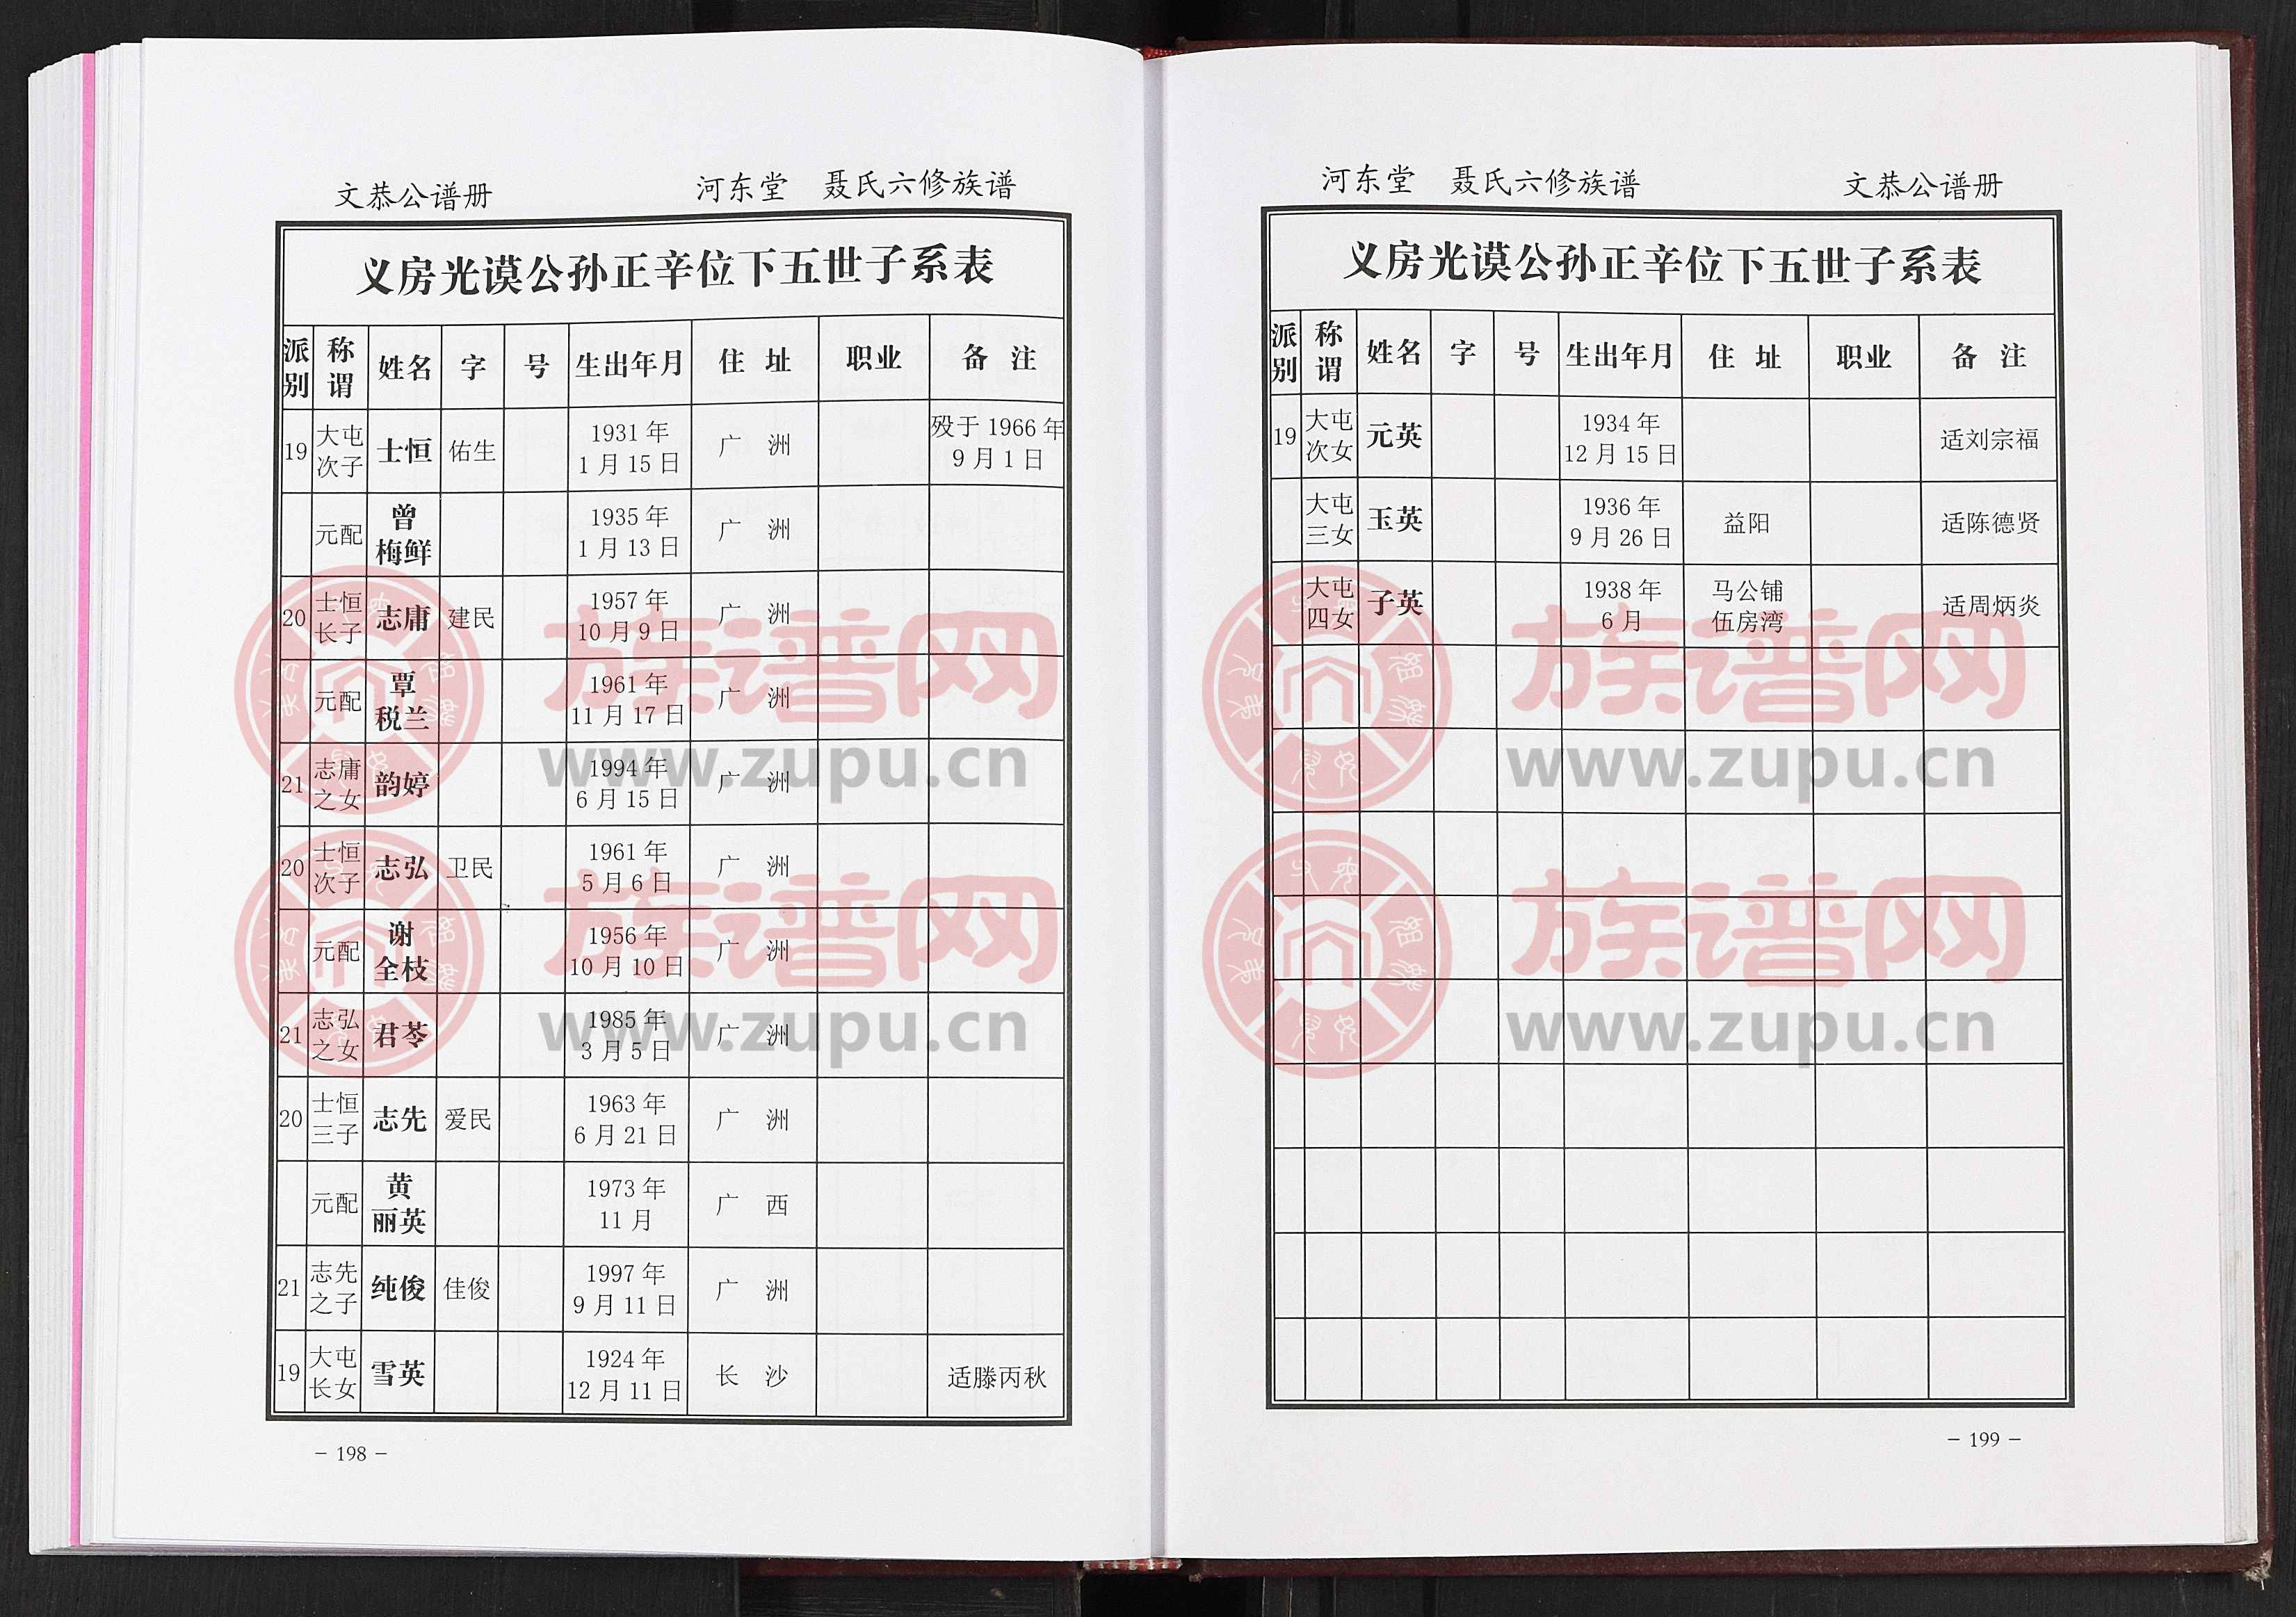 文恭公谱册 河东堂 聂氏六修族谱
义房光谟公孙正辛位下五世子系表
派别 称谓 姓名 字 号 生出年月 住址 职业 备注
19 大屯次子 士恒 佑生 1931年1月15日 广洲 殁于1966年9月1日
元配 曾梅鲜 1935年1月13日 广洲
20 士恒长子 志庸 建民 1957年10月9日 广洲
元配 覃税兰 1961年11月17日 广洲
21 志庸之女 韵婷 1994年6月15日 广洲
20 士恒次子 志弘 卫民 1961年5月6日 广洲
元配 谢全枝 1956年10月10日 广洲
21 志弘之女 君苓 1985年3月5日 广洲
20 士恒三子 志先 爱民 1963年6月21日 广洲
元配 黄丽英 1973年11月 广西
21 志先之子 纯俊 佳俊 1997年9月11日 广洲
19 大屯长女 雪英 1924年12月11日 长沙 适滕丙秋
- 198 -
河东堂 聂氏六修族谱 文恭公谱册
义房光谟公孙正辛位下五世子系表
派别 称谓 姓名 字 号 生出年月 住址 职业 备注
19 大屯次女 元英 1934年12月15日 适刘宗福
大屯三女 玉英 1936年9月26日 益阳 适陈德贤
大屯四女 子英 1938年6月 马公铺伍房湾 适周炳炎
- 199 -
族谱网
www.zupu.cn
族谱网
www.zupu.cn
族谱网
www.zupu.cn
族谱网
www.zupu.cn